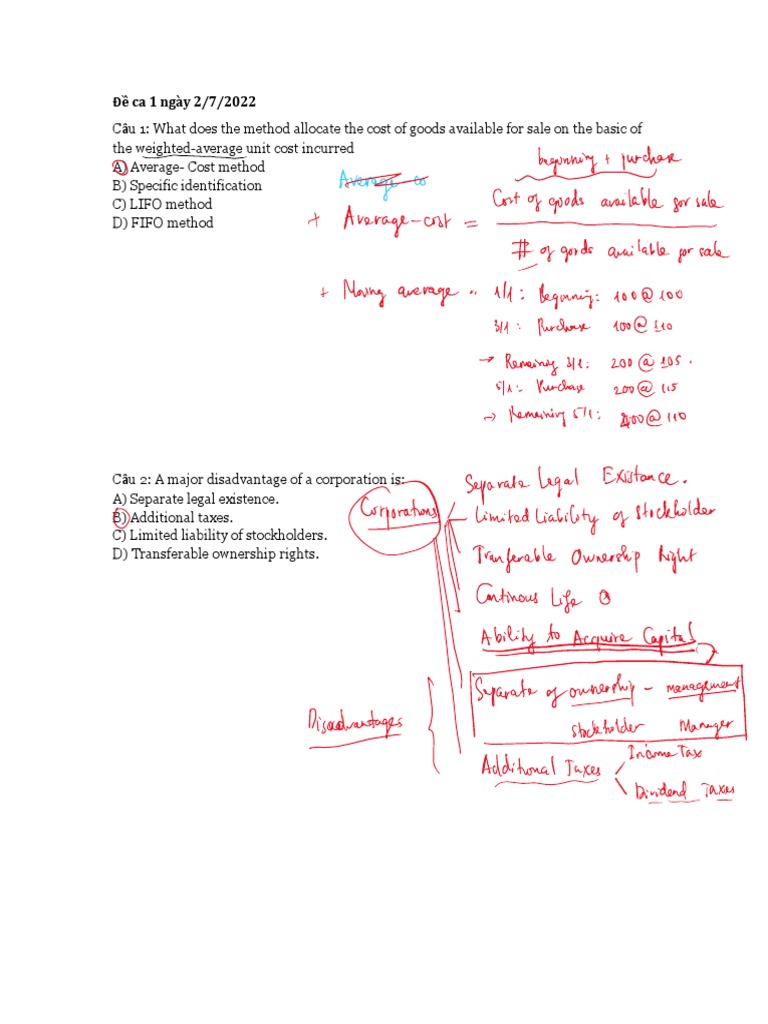 Đề ca 1 ngày 2/7/2022
Câu 1: What does the method allocate the cost of goods available for sale on the basic of
the weighted-average unit cost incurred
A) Average- Cost method
B) Specific identification
C) LIFO method
D) FIFO method
beginning + purchase
Average - co
Cost of goods available for sale
+ Average-cost =
# of goods available for sale
+ Moving average : 1/1: Beginning: 100@100
3/1: Purchase 100@110
→ Remaining 3/1: 200@105.
5/1: Purchase 200@115
→ Remaining 5/1: 400@110
Câu 2: A major disadvantage of a corporation is:
A) Separate legal existence.
B) Additional taxes.
C) Limited liability of stockholders.
D) Transferable ownership rights.
Corporations
Separate Legal Existance.
Limited Liability of Stockholder
Tranferable Ownership Right
Continous Life
Ability to Acquire Capital
Separate of ownership - management
stockholder Manager
Disadvantages
Additional Taxes
Income Tax
Dividend Taxes